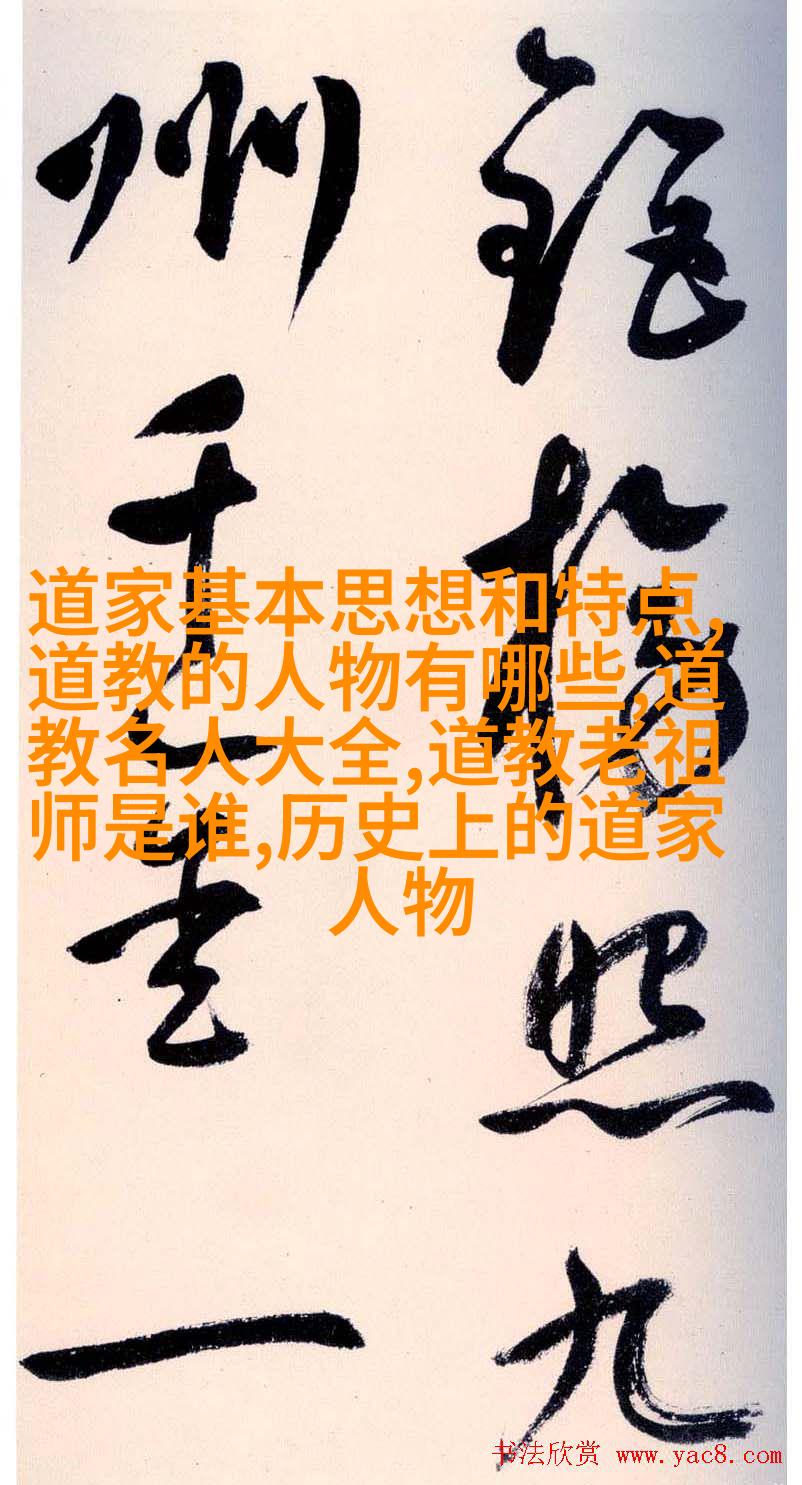 照九
州
一
道家基本思想和特点,
道教的人物有哪些,道
教名人大全,道教老祖
师是谁,历史上的道家
人物
书法欣赏 www.yac8.com